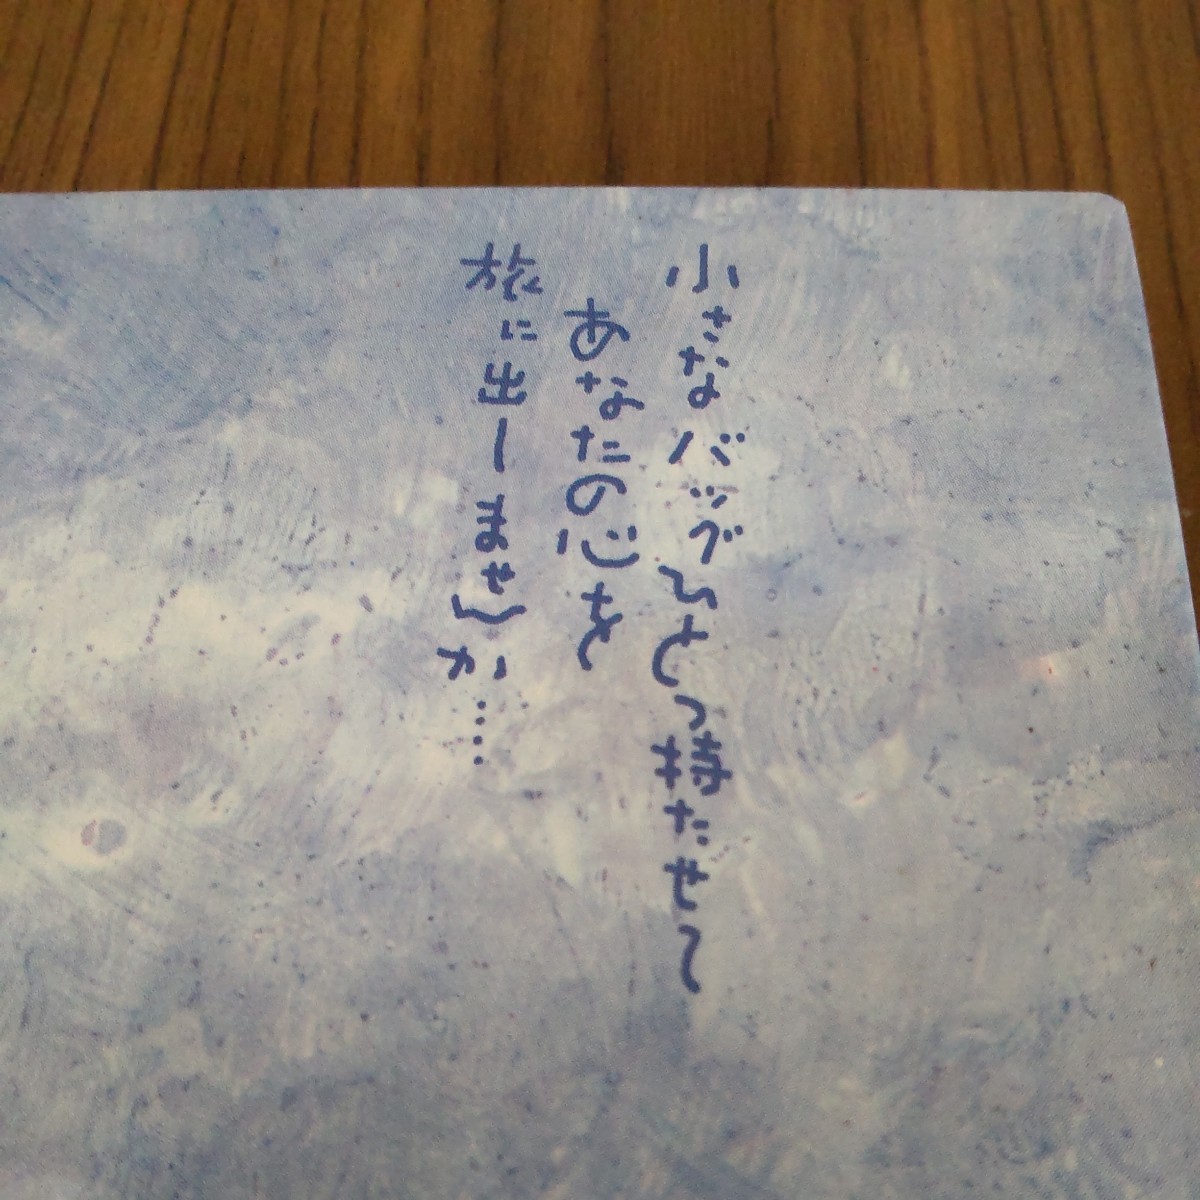 小さなバッグひとつ持たせて
あなたの心を
旅に出しませんか……